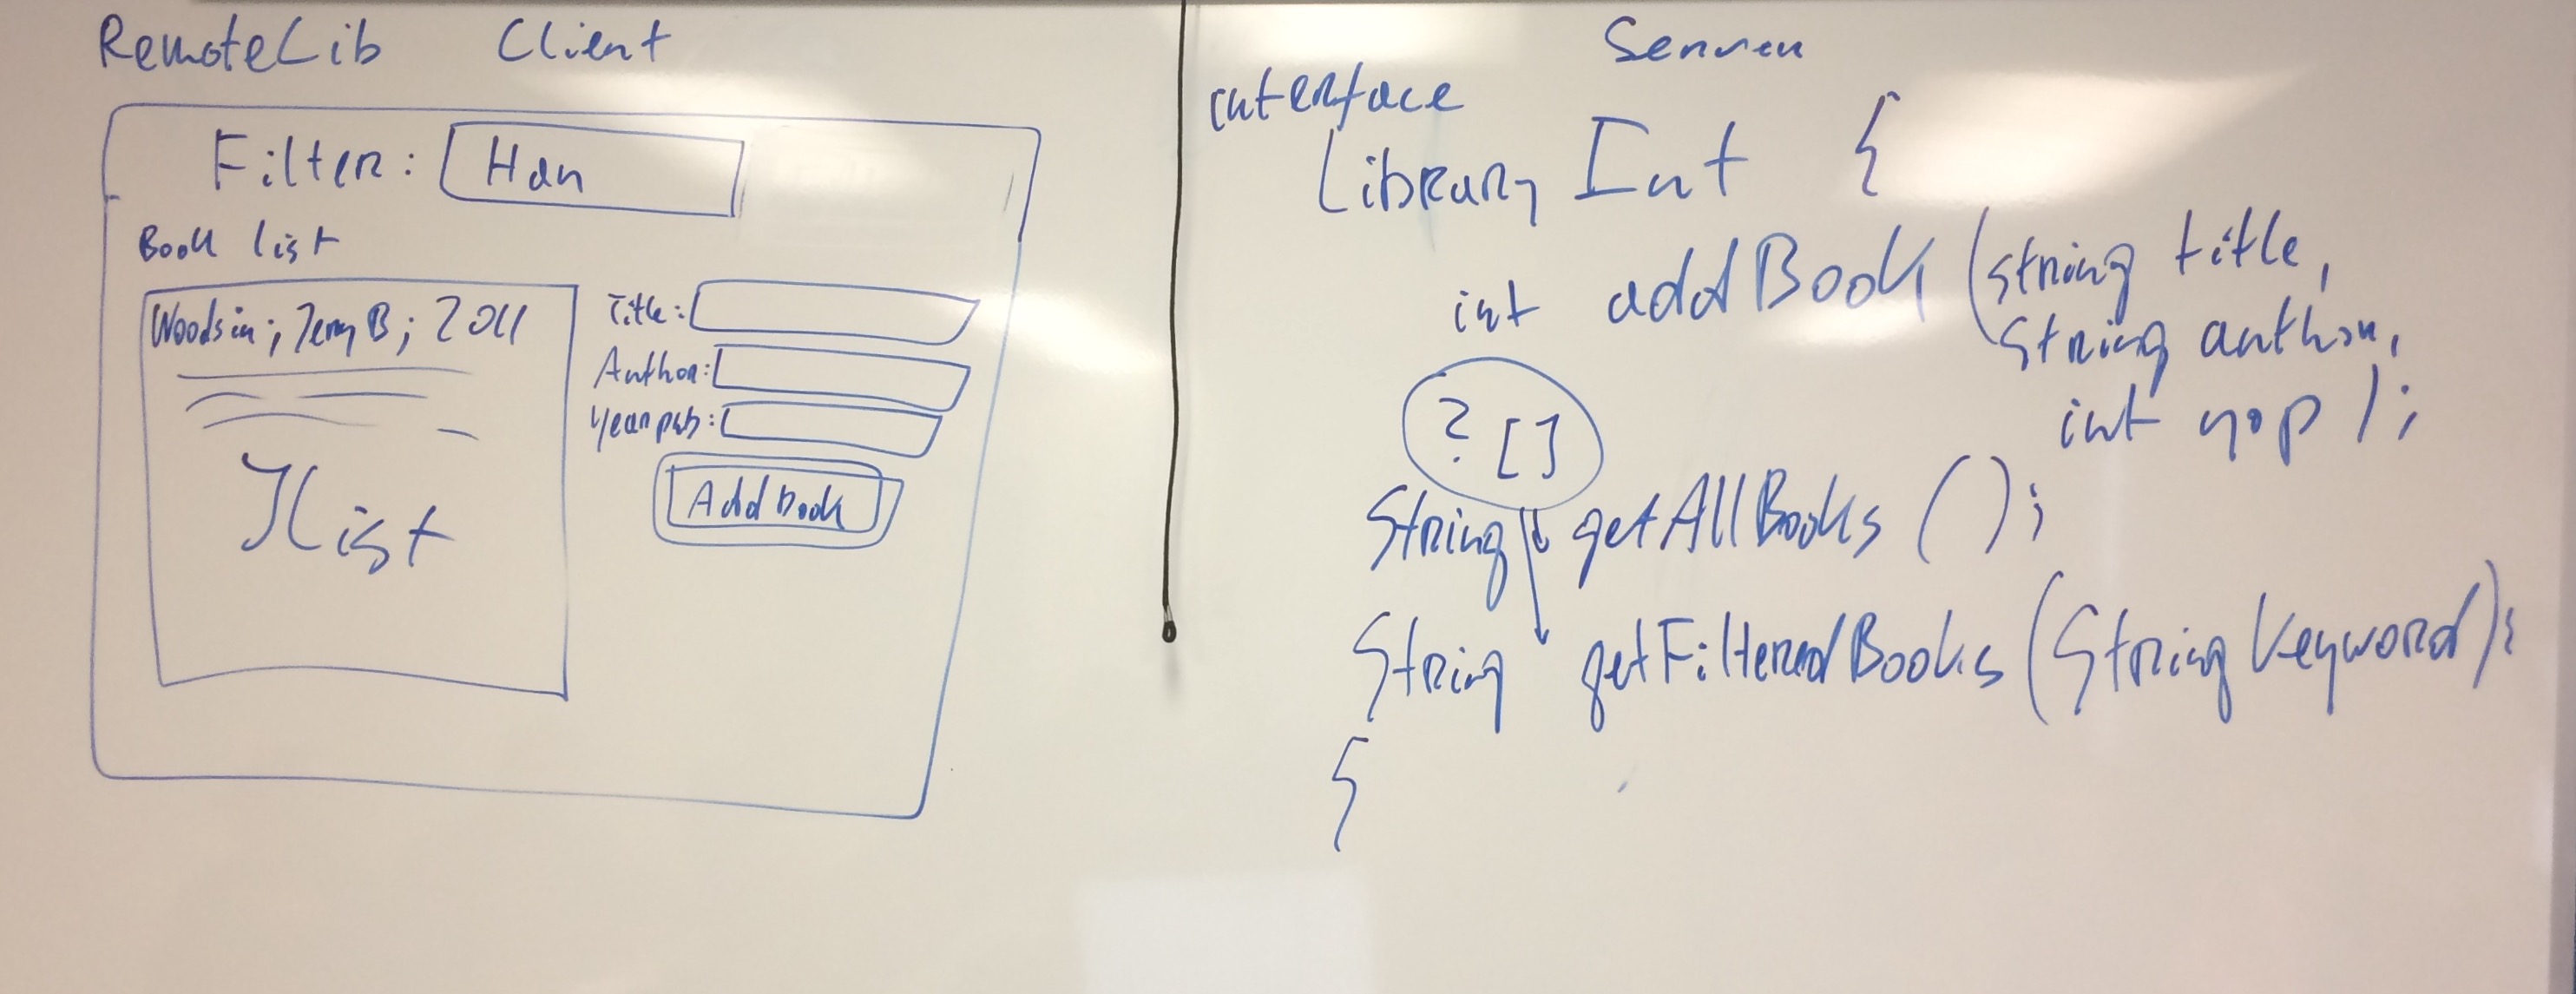 RemoteLib Client
Filter: Han
Book list
Woodsin; Jerry B; 2011
Jlist
Title:
Author:
Year pub:
Add Book
Server
interface
Library Int {
int addBook (String title,
String author,
int yop);
? []
String getAllBooks ();
String getFilteredBooks (String Keyword);
{